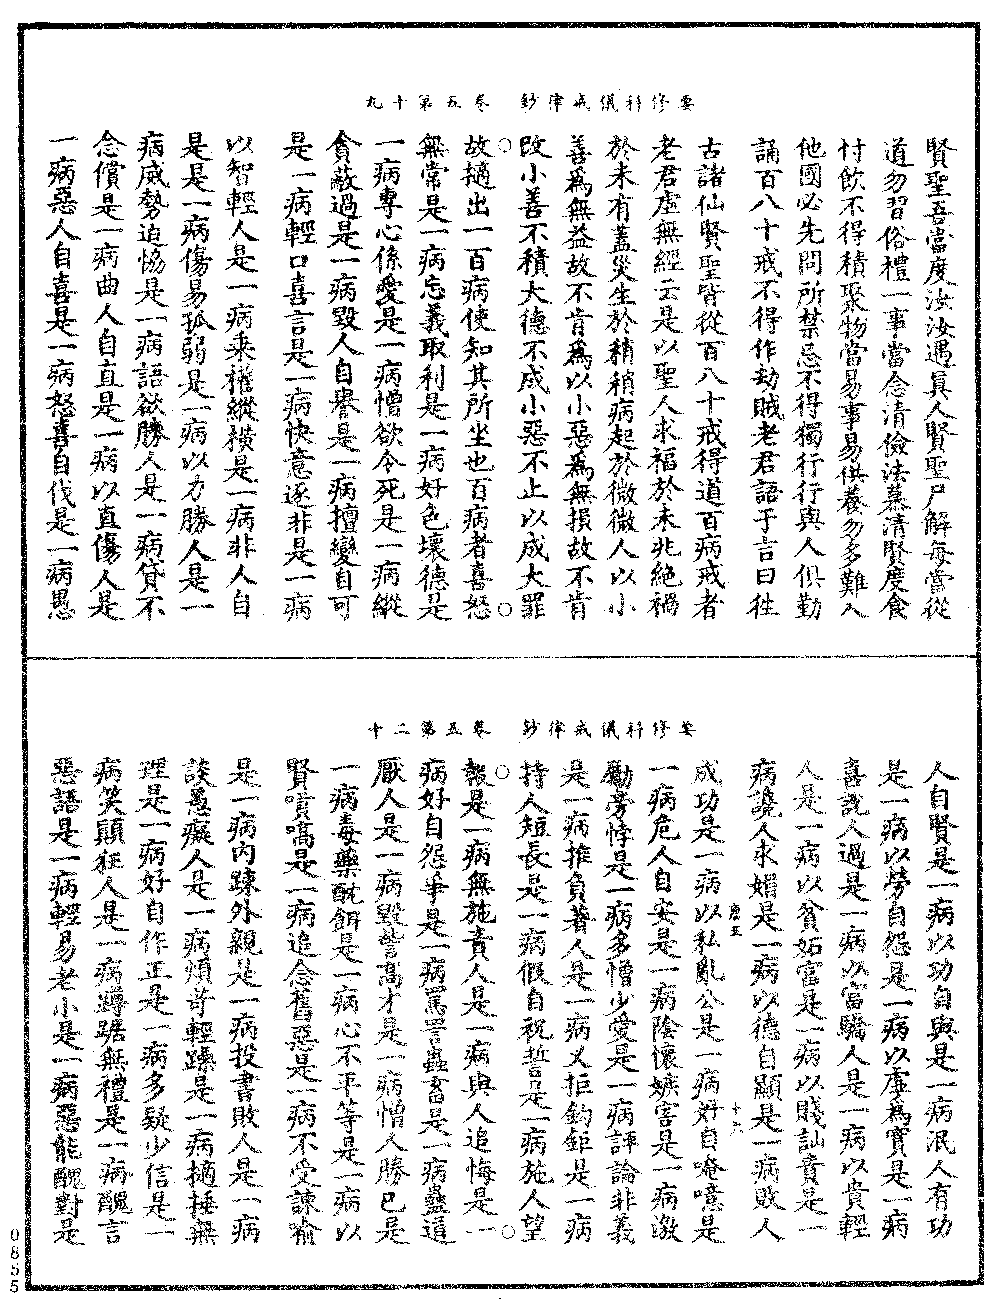 要修科儀戒律鈔　卷五第十九
賢聖吾當度汝汝遇眞人賢聖尸解每當從
道勿習俗禮一事當念清儉法慕清賢度食
付飲不得積聚物當易事易供養勿多難人
他國必先問所禁忌不得獨行行與人俱勤
誦百八十戒不得作劫賊老君語于言曰往
古諸仙賢聖皆從百八十戒得道百病戒者
老君虛無經云是以聖人求福於未兆絕禍
於未有蓋災生於稍稍病起於微微人以小
善爲無益故不肯爲以小惡爲無損故不肯
改小善不積大德不成小惡不止以成大罪
故擿出一百病使知其所坐也百病者喜怒
無常是一病忘義取利是一病好色壞德是
一病專心係愛是一病憎欲令死是一病縱
貪蔽過是一病毀人自譽是一病擅變自可
是一病輕口喜言是一病快意逐非是一病
以智輕人是一病乘權縱橫是一病非人自
是是一病傷易孤弱是一病以力勝人是一
病威勢迫恊是一病語欲勝人是一病貸不
念償是一病曲人自直是一病以直傷人是
一病惡人自喜是一病怒喜自伐是一病愚
要修科儀戒律鈔　卷五第二十
人自賢是一病以功自與是一病泯人有功
是一病以勞自怨是一病以虛爲實是一病
喜說人過是一病以富驕人是一病以貴輕
人是一病以貧妬富是一病以賤訕貴是一
病讒人求媚是一病以德自顯是一病敗人
成功是一病以私亂公是一病好自唵噫是
一病危人自安是一病陰懷嫉害是一病激
勵旁悖是一病多憎少愛是一病評論非義
是一病推負著人是一病义拒鈎鉅是一病
持人短長是一病假自祝誓是一病施人望
報是一病無施責人是一病與人追悔是一
病好自怨爭是一病罵詈蟲畜是一病蠱道
厭人是一病毀訾高才是一病憎人勝已是
一病毒藥酖餌是一病心不平等是一病以
賢嗊嗃是一病追念舊惡是一病不受諫喻
是一病內踈外親是一病投書敗人是一病
談愚癡人是一病煩苛輕躁是一病擿捶無
理是一病好自作正是一病多疑少信是一
病笑顚狂人是一病蹲踞無禮是一病醜言
惡語是一病輕易老小是一病惡態醜對是
0855